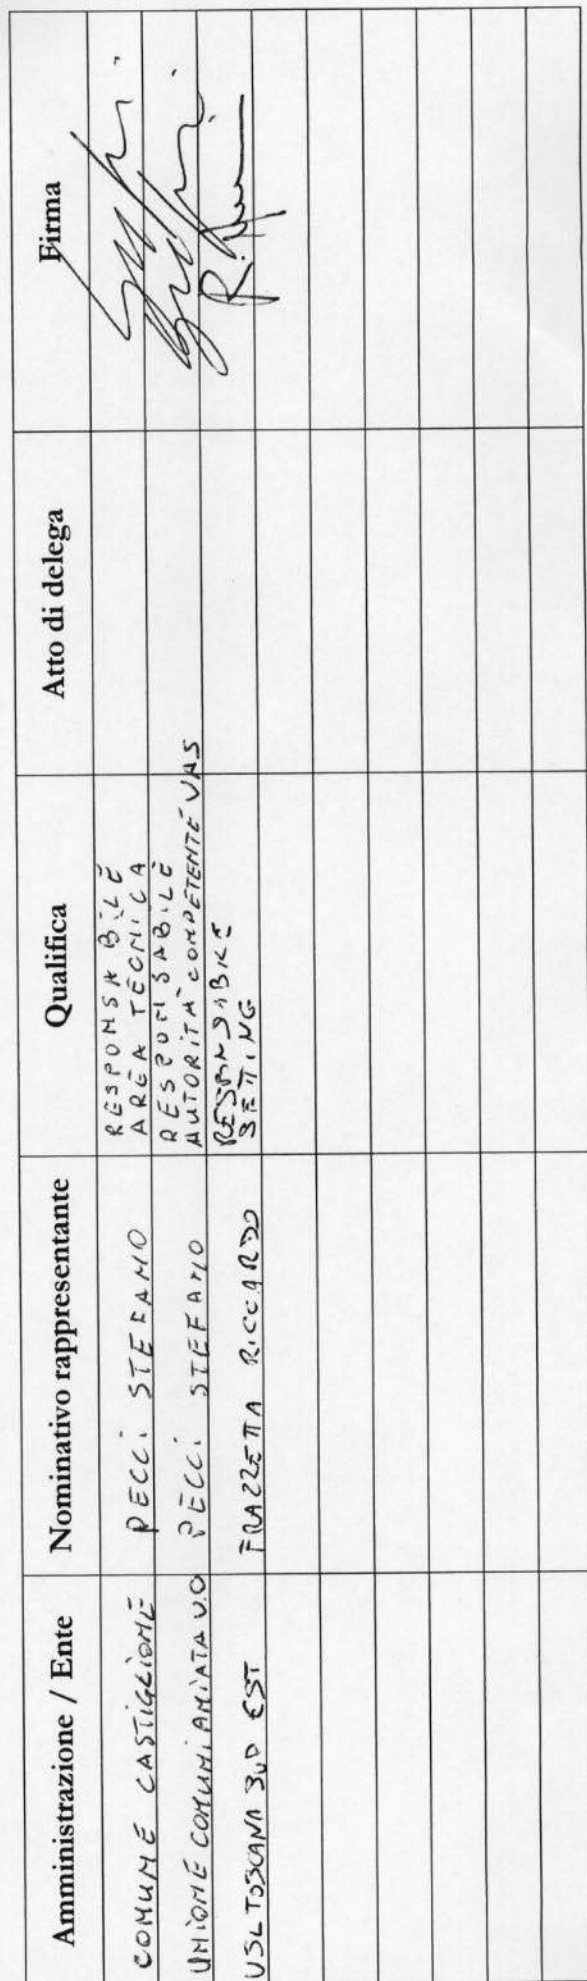 Amministrazione / Ente Nominativo rappresentante Qualifica Atto di delega Firma
COMUNE CASTIGLIONE PECCI STEFANO RESPONSABILE
AREA TECNICA
UNIONE COMUNI AMIATA V.O PECCI STEFANO RESPONSABILE
AUTORITA' COMPETENTE VAS
USL TOSCANA SUD EST FRAZZETTA RICCARDO RESPONSABILE
SETTING